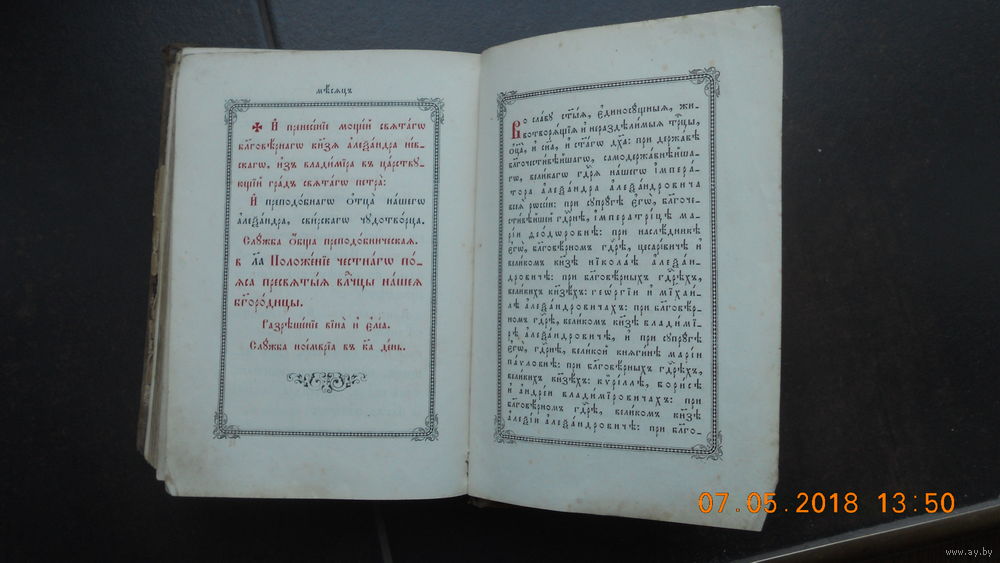 мѣсяцъ
✠ И҆ принесе́нїе моще́й свѧта́гѡ
бл҃говѣ́рнагѡ кнѧ́зѧ а҆леѯа́ндра не́в-
скагѡ, и҆зъ влади́мїра въ ца́рствꙋ-
ющїй гра́дъ свѧта́гѡ петра̀:
И҆ преподо́бнагѡ ѻ҆тца̀ на́шегѡ
а҆леѯа́ндра, сви́рскагѡ чꙋдотво́рца.
Слꙋ́жба ѻ҆́бща преподо́бническая.
в л҃а Положе́нїе честна́гѡ по́-
ѧса пресвѧты́ѧ вл҃чцы на́шеѧ
бг҃оро́дицы.
Разрѣше́нїе вїна̀ и҆ є҆ле́а.
Слꙋ́жба ное́мврїа въ к҃а де́нь.
Во сла́вꙋ ст҃ы́ѧ, є҆диносꙋ́щныѧ, жи-
вотворѧ́щїѧ и҆ нераздѣ́лимыѧ трⷪ҇цы,
ѻ҆ц҃а̀, и҆ сн҃а, и҆ ст҃а́гѡ дх҃а: при держа́вѣ
бл҃гочести́вѣйшагѡ, самодержа́внѣйша-
гѡ, вели́кагѡ гдⷭ҇рѧ на́шегѡ і҆мпера́-
тора а҆леѯа́ндра а҆леѯа́ндровича
всеѧ̀ рѡссі́и: при сꙋпрꙋ́гѣ є҆гѡ̀, бл҃гоче-
сти́вѣйшей гдⷭ҇рнѣ, і҆мператри́цѣ ма-
рі́и ѳео́дѡровнѣ: при наслѣ́дникѣ
є҆гѡ̀, бл҃говѣ́рномъ гдⷭ҇рѣ, цесаре́вичѣ и҆
вели́комъ кнѧ́зѣ нїкола́ѣ а҆леѯа́н-
дровичѣ: при бл҃говѣ́рныхъ гдⷭ҇рѣхъ,
вели́кихъ кнѧ́зехъ: геѡ́ргїи и҆ мїхаи́-
лѣ а҆леѯа́ндровичахъ: при бл҃говѣ́р-
номъ гдⷭ҇рѣ, вели́комъ кнѧ́зѣ влади́мї-
рѣ а҆леѯа́ндровичѣ, и҆ при сꙋпрꙋ́гѣ
є҆гѡ̀, гдⷭ҇рнѣ, вели́кой кнѧги́нѣ марі́и
па́ѵловнѣ: при бл҃говѣ́рныхъ гдⷭ҇рѣхъ,
вели́кихъ кнѧ́зехъ: кѷрі́ллѣ, бори́сѣ
и҆ а҆ндре́и влади́мїровичахъ: при
бл҃говѣ́рномъ гдⷭ҇рѣ, вели́комъ кнѧ́зѣ
а҆леѯі́и а҆леѯа́ндровичѣ: при бл҃го-
07.05.2018 13:50
www.ay.by